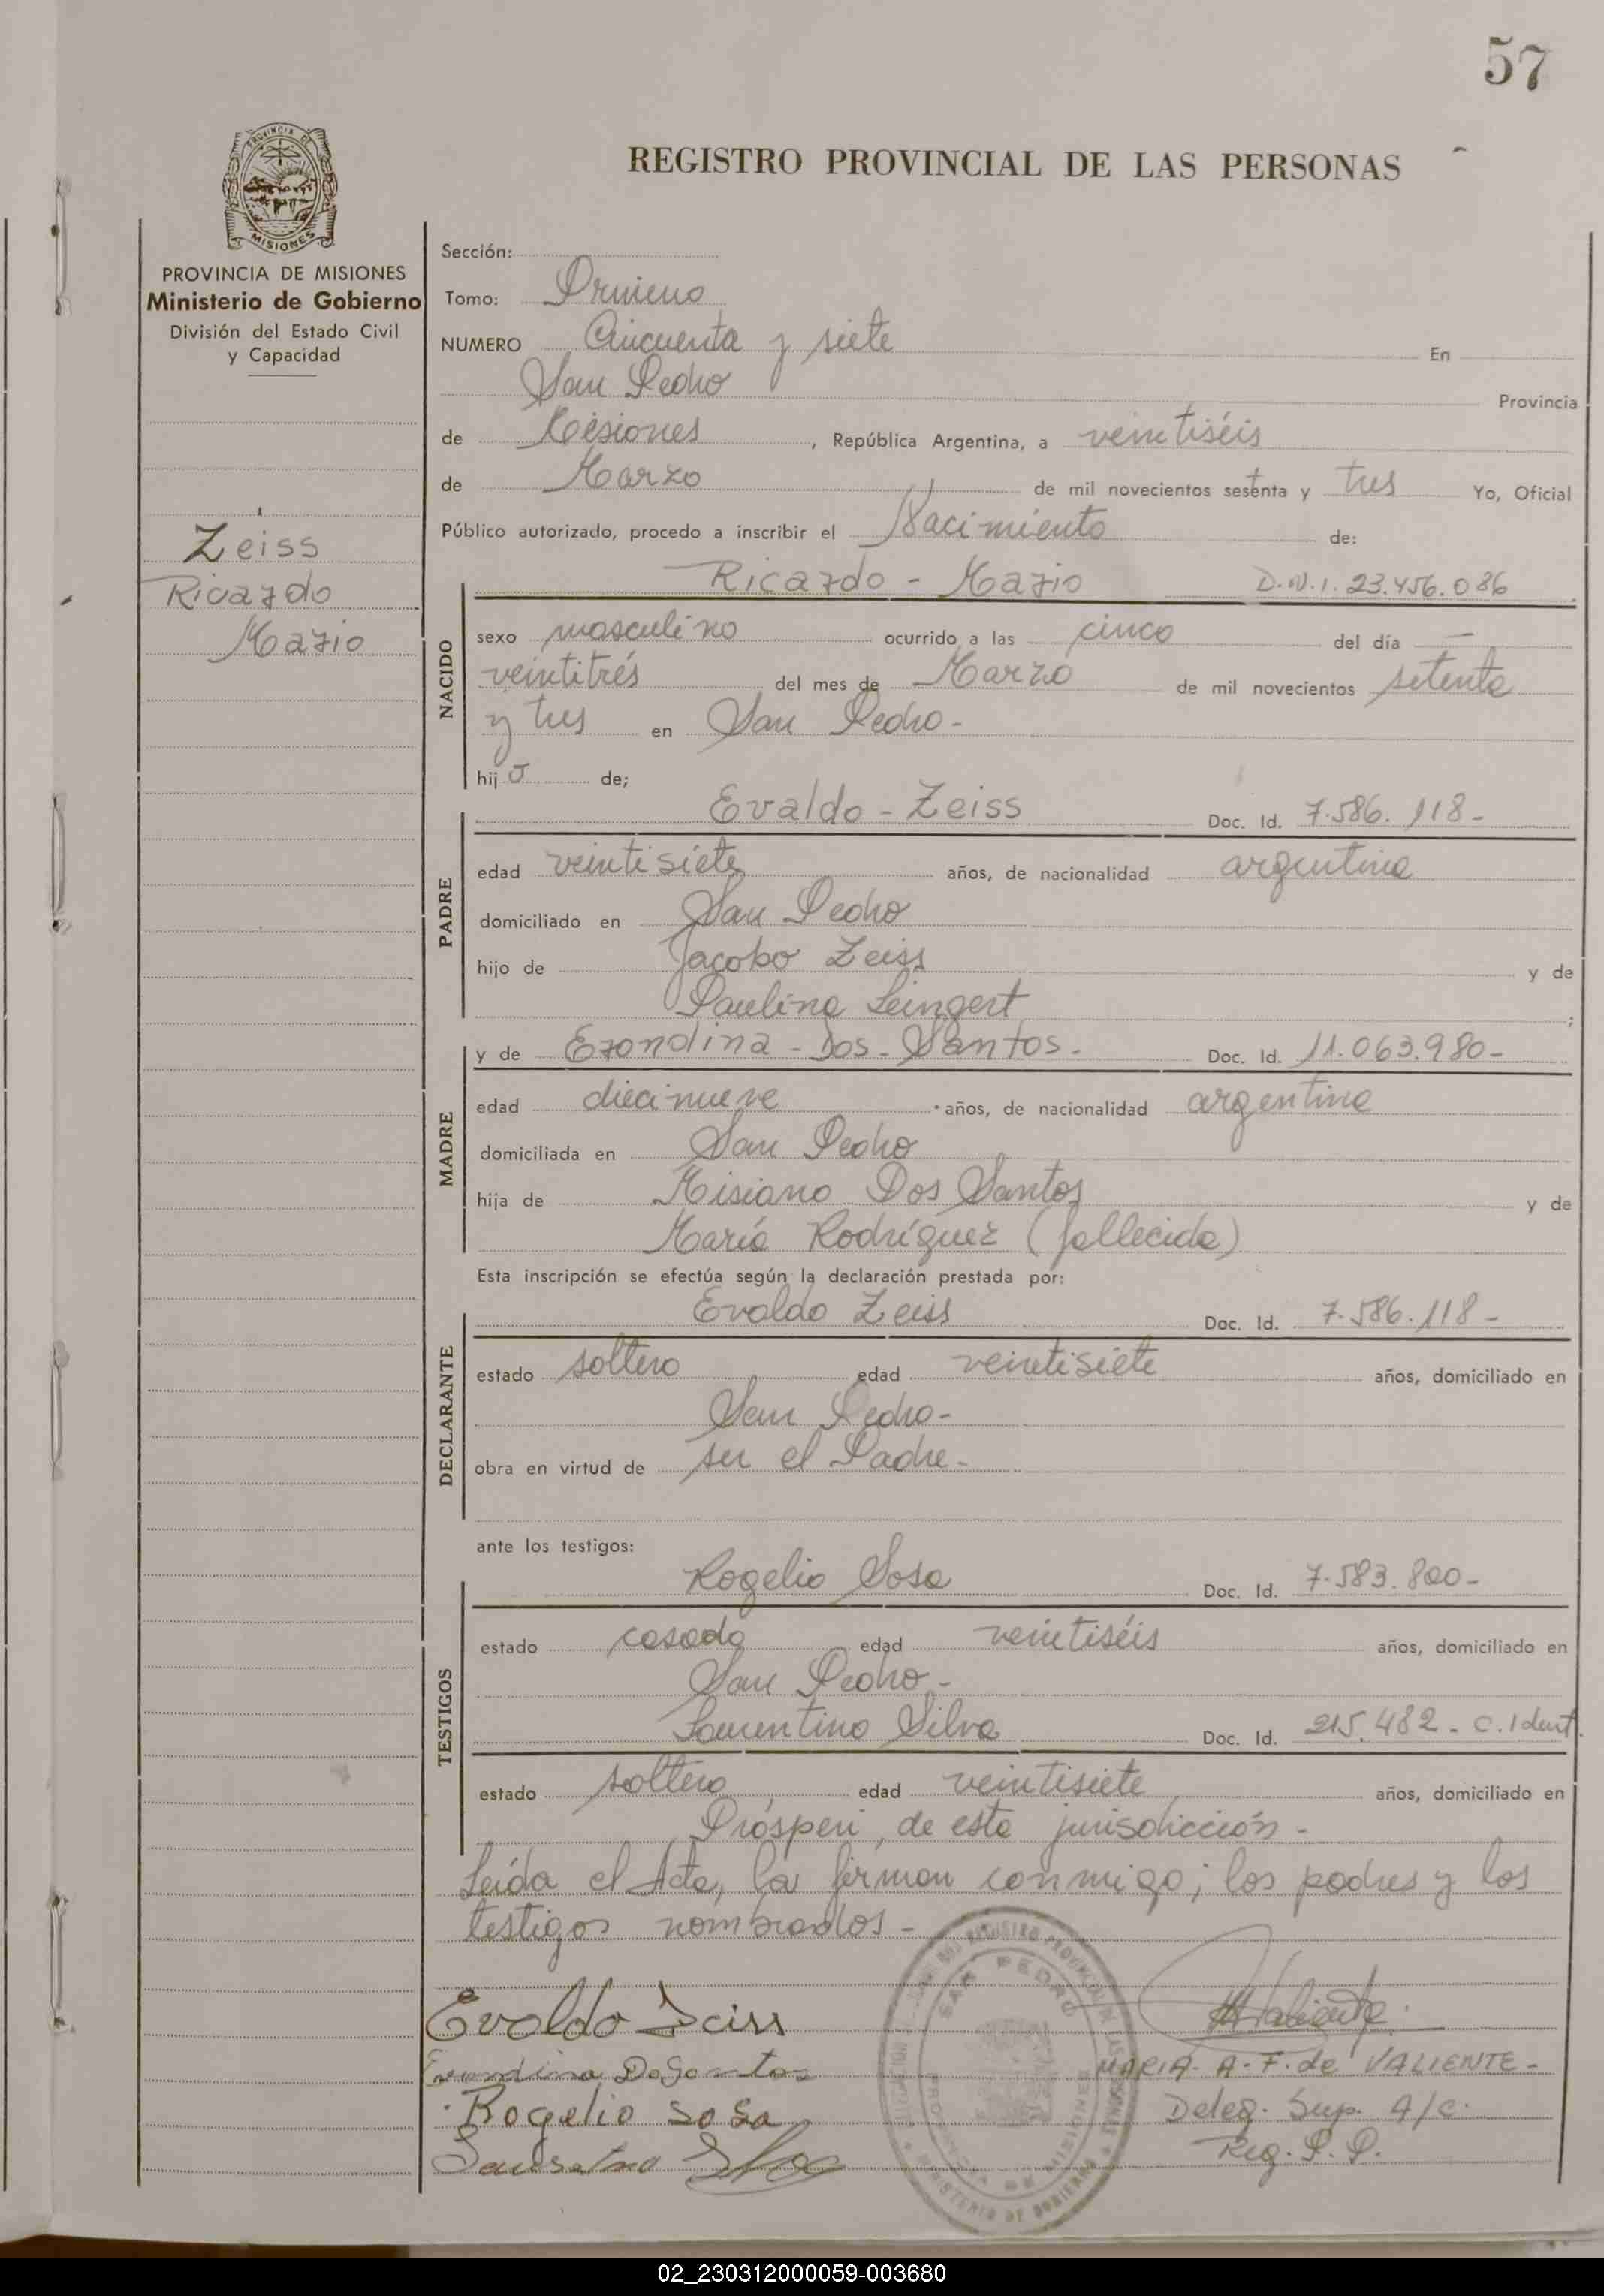 57
REGISTRO PROVINCIAL DE LAS PERSONAS
PROVINCIA DE MISIONES
Ministerio de Gobierno
División del Estado Civil
y Capacidad
Zeiss
Ricardo
Mario
Sección:
Tomo: Primero
NUMERO Cincuenta y siete En
San Pedro Provincia
de Misiones, República Argentina, a veintiséis
de Marzo de mil novecientos sesenta y tres Yo, Oficial
Público autorizado, procedo a inscribir el Nacimiento de:
Ricardo - Mario D.N.I. 23.456.086
NACIDO
sexo masculino ocurrido a las cinco del día —
veintitrés del mes de Marzo de mil novecientos setenta
y tres en San Pedro-
hijo de;
Evaldo - Zeiss Doc. Id. 7.586.118-
PADRE
edad veintisiete años, de nacionalidad argentina
domiciliado en San Pedro
hijo de Jacobo Zeiss y de
Paulina Leingert ;
y de Erondina - Dos - Santos - Doc. Id. 11.063.980-
MADRE
edad diecinueve años, de nacionalidad argentina
domiciliada en San Pedro
hija de Misiano Dos Santos y de
María Rodríguez (fallecida)
Esta inscripción se efectúa según la declaración prestada por:
Evaldo Zeiss Doc. Id. 7.586.118-
DECLARANTE
estado soltero edad veintisiete años, domiciliado en
San Pedro-
obra en virtud de ser el Padre-
ante los testigos:
Rogelio Sosa Doc. Id. 7.583.800-
TESTIGOS
estado casado edad veintiséis años, domiciliado en
San Pedro-
Silva Doc. Id. 215.482- C. Ident.
estado soltero edad veintisiete años, domiciliado en
Prósperi, de esta jurisdicción-
Leída el Acta, la firman conmigo; los padres y los
testigos nombrados-
Evaldo Zeiss
Dosantos
Rogelio Sosa
SAN PEDRO
MINISTERIO DE GOBIERNO
MARIA. A. F. de VALIENTE-
Deleg. Sup. A/C.
Reg. P. P.
02_230312000059-003680